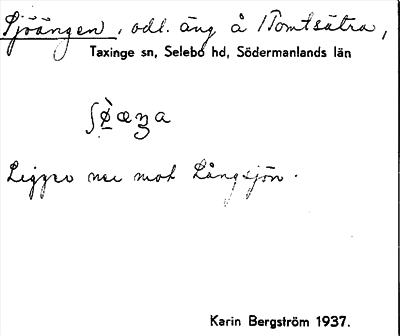 Sjöängen, odl. äng å Tomtsätra,
Taxinge sn, Selebo hd, Södermanlands län
Ligger ner mot Långsjön.
Karin Bergström 1937.